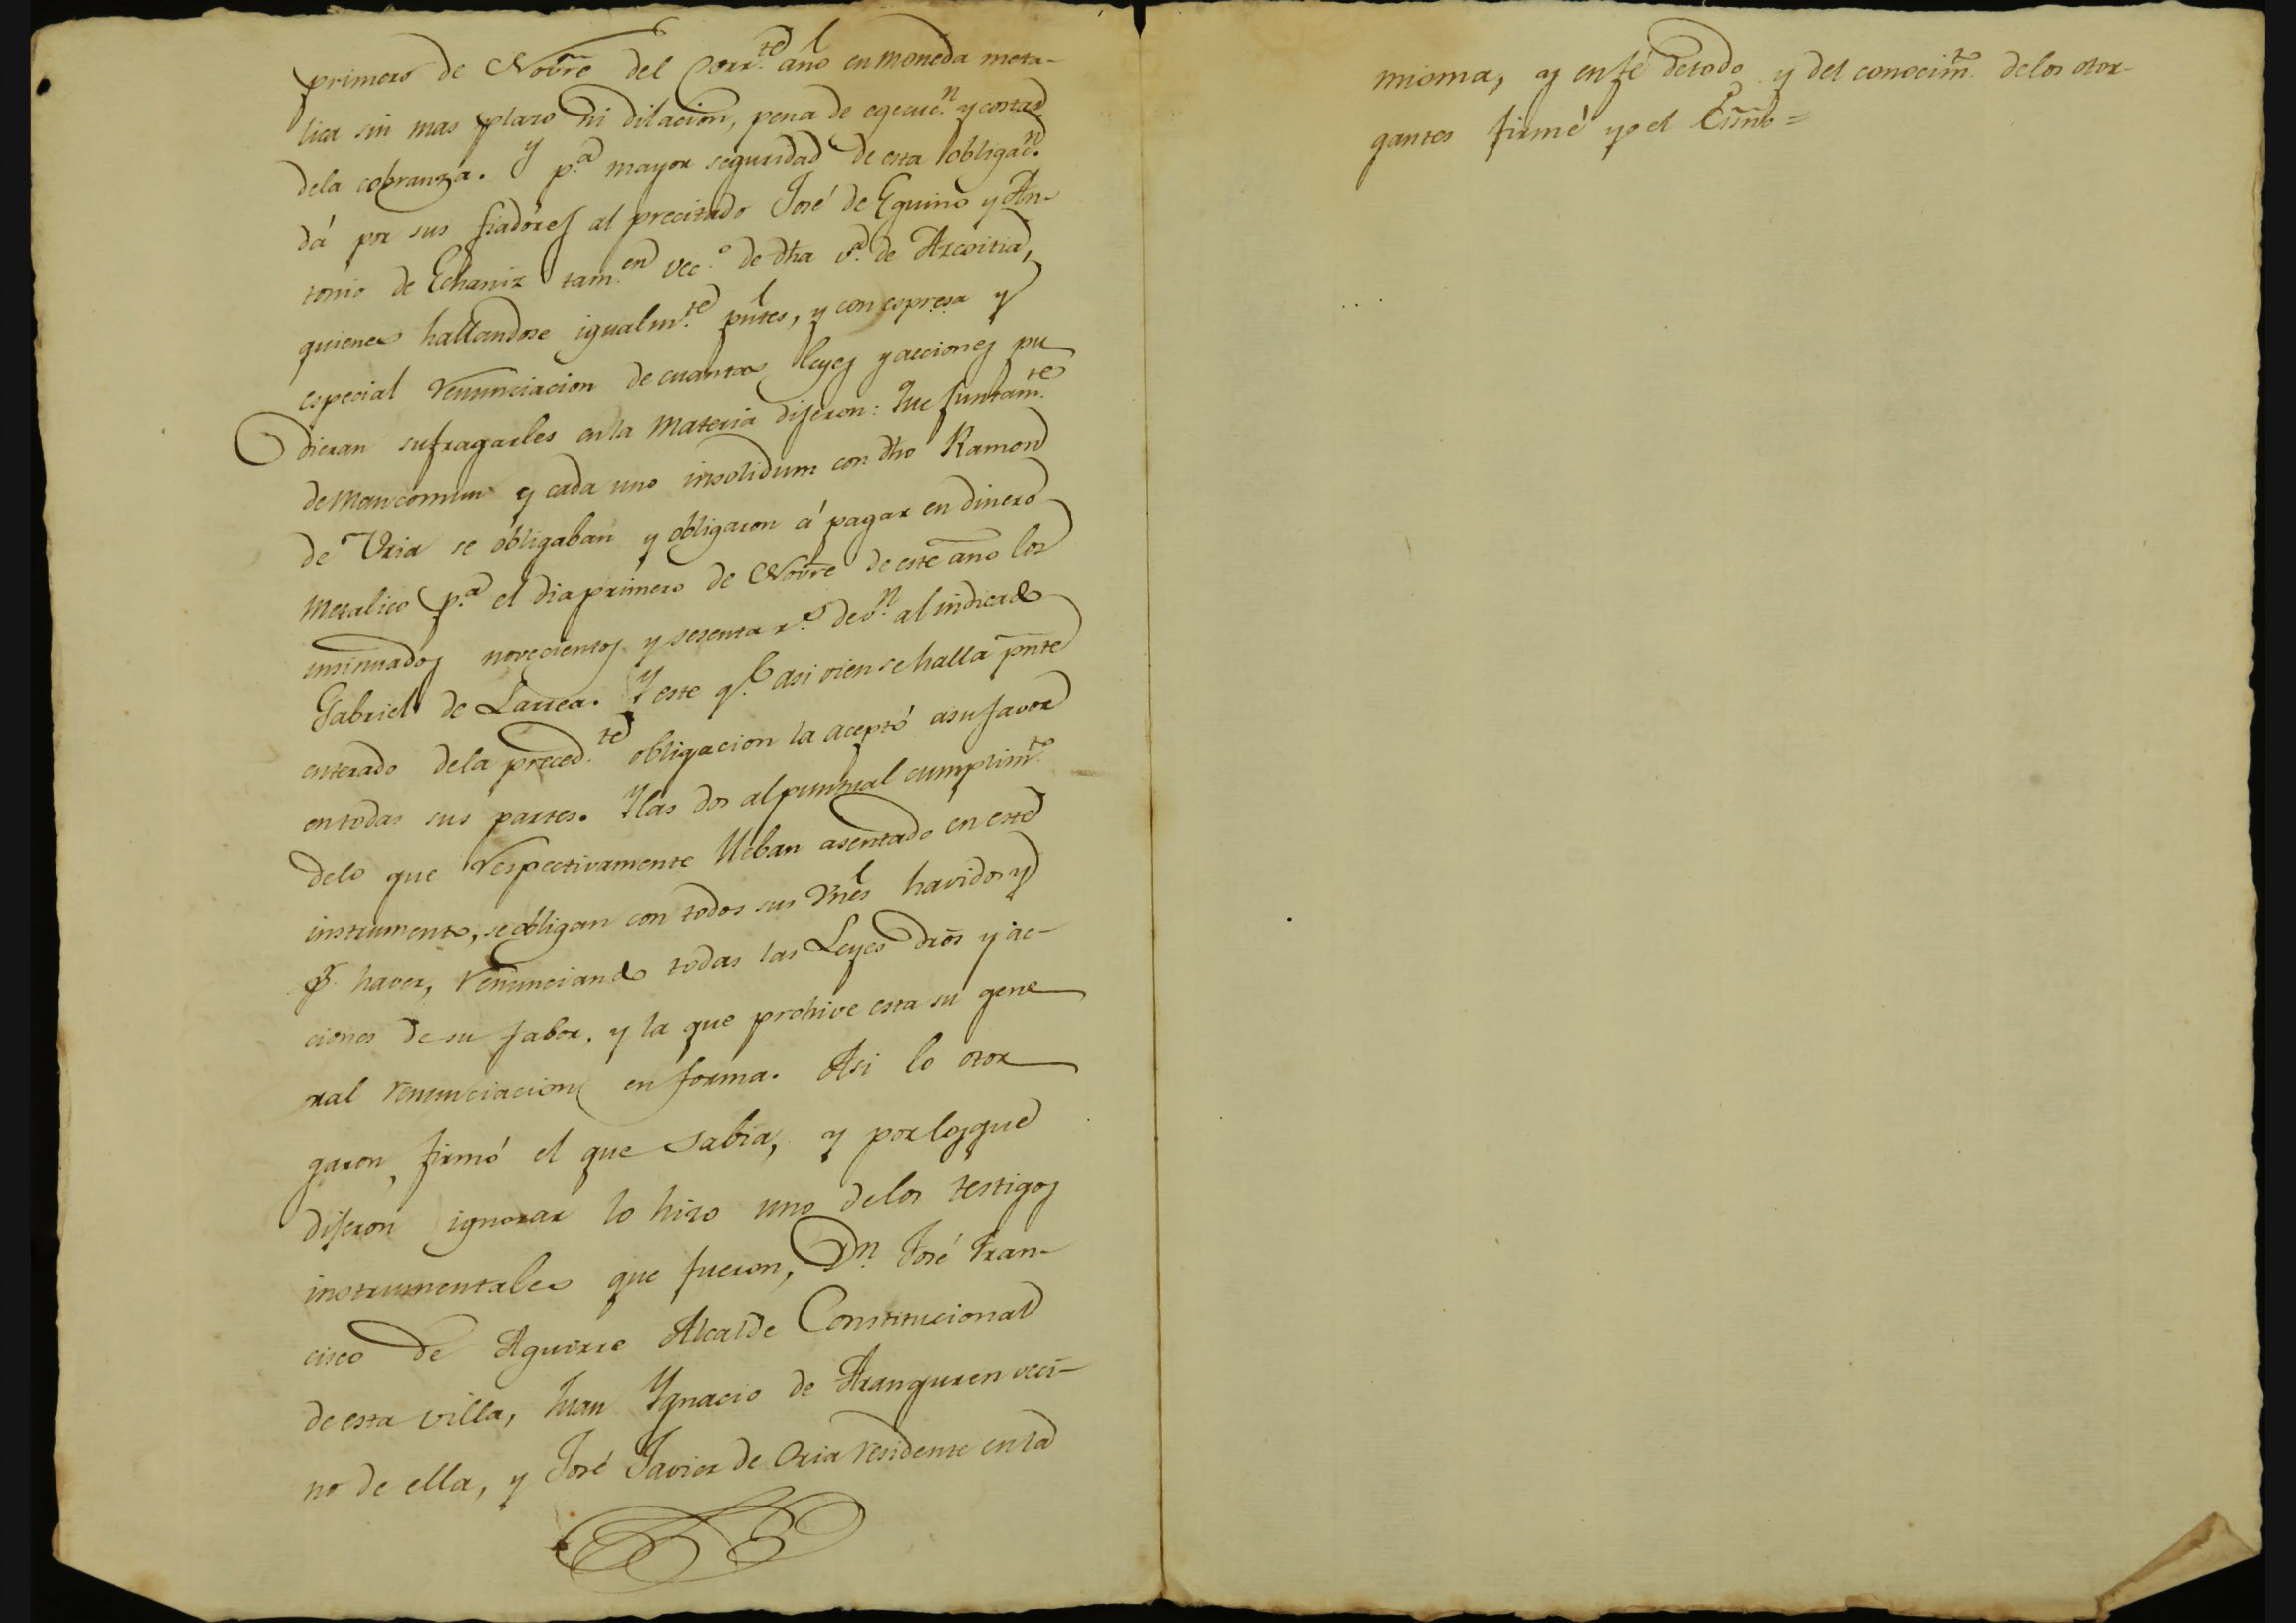 primero de Novre del Corrte año en moneda meta-
lica sin mas plazo ni dilacion, pena de egecucn y costas
dela cobranza. Y pa mayor seguridad de esta obligacn
dá por sus fiadores al precitado José de Eguino y An-
tonio de Echaniz tamen veco de dha va de Azcoitia,
quienes hallandose igualmte pntes, y con espresa y
especial renunciacion de cuantas leyes y acciones pu
dieran sufragarles en la materia dijeron: Que juntamte
de mancomun y cada uno insolidum con dho Ramon
de Oria se obligaban y obligaron á pagar en dinero
metalico pa el dia primero de Novre de este año los
insinuados novecientos y sesenta rs de vn al indicado
Gabriel de Larrea. Y este qe asi vien se halla pnte
enterado dela precedte obligacion la aceptó asu favor
en todas sus partes. Y las dos al puntual cumplimto
delo que respectivamente lleban asentado en este
instrumento, se obligan con todos sus vnes havidos y
pr haver, renunciando todas las Leyes dros y ac-
ciones de su fabor, y la que prohive esta su gene
ral renunciacion en forma. Asi lo otor
garon, firmó el que sabia, y por los que
dijeron ignorar lo hizo uno delos testigos
instrumentales que fueron, Dn José Fran-
cisco de Aguirre Alcalde Constitucional
de esta villa, Juan Ygnacio de Aranguren veci-
no de ella, y José Javier de Oria residente en la
misma, y en fé detodo y del conocimto delos otor-
gantes firmé yo el Essno =